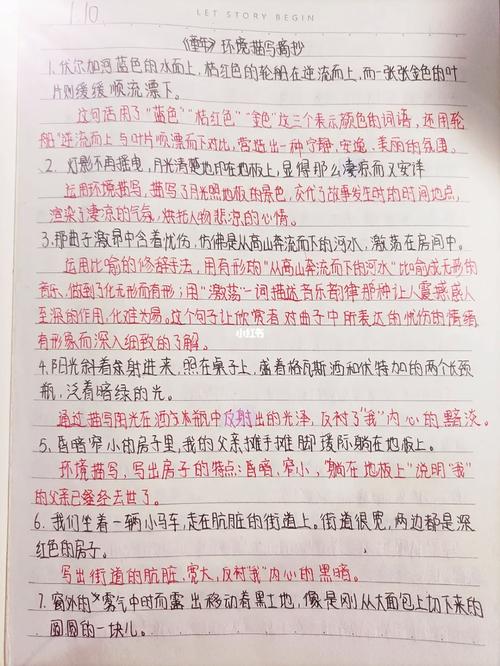 1.10
LET STORY BEGIN
《童年》环境描写摘抄
1.伏尔加河蓝色的水面上，桔红色的轮船在逆流而上，而一张张金色的叶
片则缓缓顺流漂下。
这句话用了"蓝色""桔红色""金色"这三个表示颜色的词语，还用轮
船"逆流而上与叶片顺漂而下对比，营造出一种宁静，安逸、美丽的氛围。
2. 灯影不再摇曳，月光清楚地印在地板上，显得那么凄凉而又安详
运用环境描写，描写了月光照地板的景色，交代了故事发生时的时间地点，
渲染了凄凉的气氛，烘托人物悲凉的心情。
3.那曲子激昂中含着忧伤，仿佛是从高山奔流而下的河水，激荡在房间中。
运用比喻的修辞手法，用有形的"从高山奔流而下的河水"比喻成无形的
音乐，做到了化无形而有形；用"激荡"一词描述音乐韵律那种让人震撼感人
至深的作用，化难为易。这个句子让欣赏者对曲子中所表达的忧伤的情绪
有形象而深入细致的了解。
小红书
4.阳光斜着照射进来，照在桌子上，盛着格瓦斯酒和伏特加的两个长颈
瓶，泛着暗绿的光。
通过描写阳光在酒瓶中反射出的光泽，反衬了"我"内心的黯淡。
5. 昏暗窄小的房子里，我的父亲摊手摊脚地躺在地板上。
环境描写，写出房子的特点：昏暗、窄小，"躺在地板上"说明"我"
的父亲已经去世了。
6. 我们坐着一辆小马车，走在肮脏的街道上。街道很宽，两边都是深
红色的房子。
写出街道的肮脏、宽大，反衬"我"内心的黑暗。
7. 窗外的雾气中时而露出移动着黑土地，像是刚从大面包上切下来的
圆圆的一块儿。